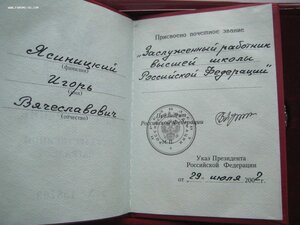 Ясиницкий
(фамилия)
Игорь
(имя)
Вячеславович
(отчество)
Присвоено почетное звание
„Заслуженный работник
высшей школы
Российской Федерации"
Президент
Российской Федерации
М.П.
Указ Президента
Российской Федерации
от 29 июля 200 г.